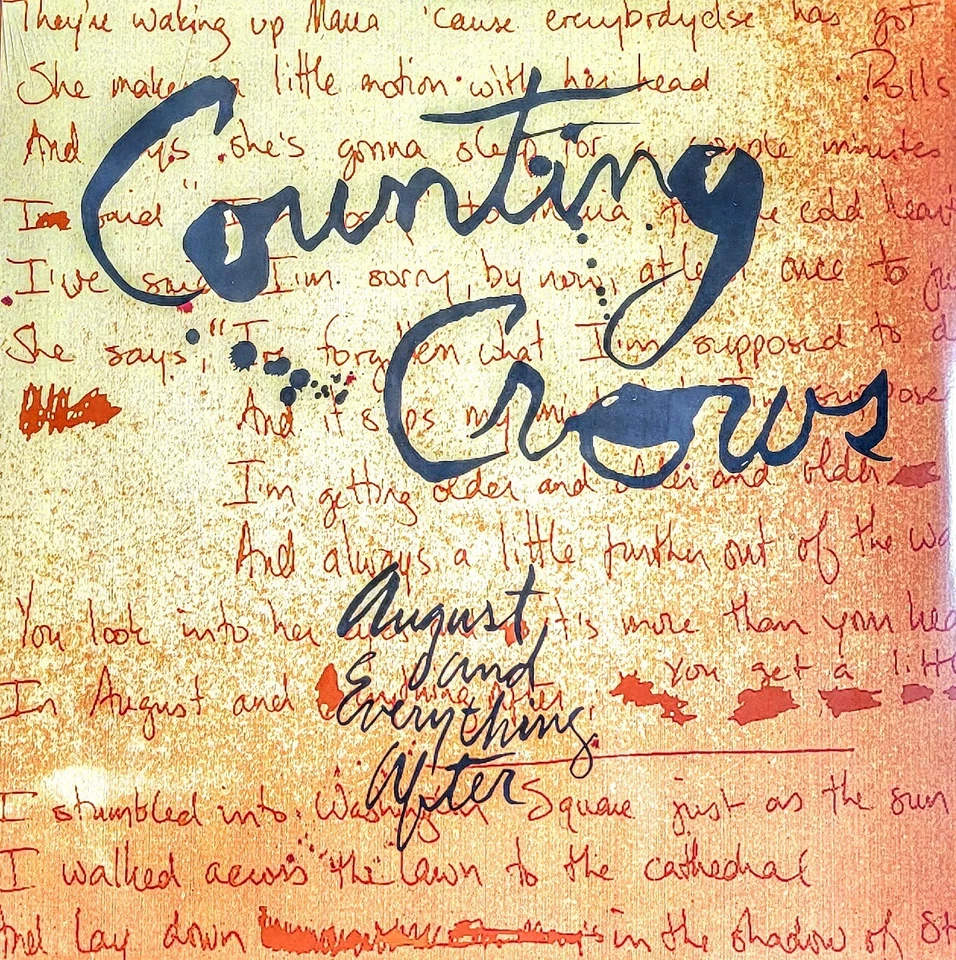 They're waking up Maria 'cause everybody else has got
She makes a little motion with her head Rolls
And says she's gonna sleep for a couple minutes
Counting
I said "I'm to Maria for the cold heart
I've said I'm sorry, by now, at least once to
She says, "I've forgiven what I'm supposed to
Crows
And it slips my mind
I'm getting older and older and older
And always a little further out of the
You look into her it's more than your
August
and
Everything
After
In August and Everything After, You get a
I stumbled into Washington Square just as the sun
I walked across the lawn to the cathedral
And lay down in the shadow of St